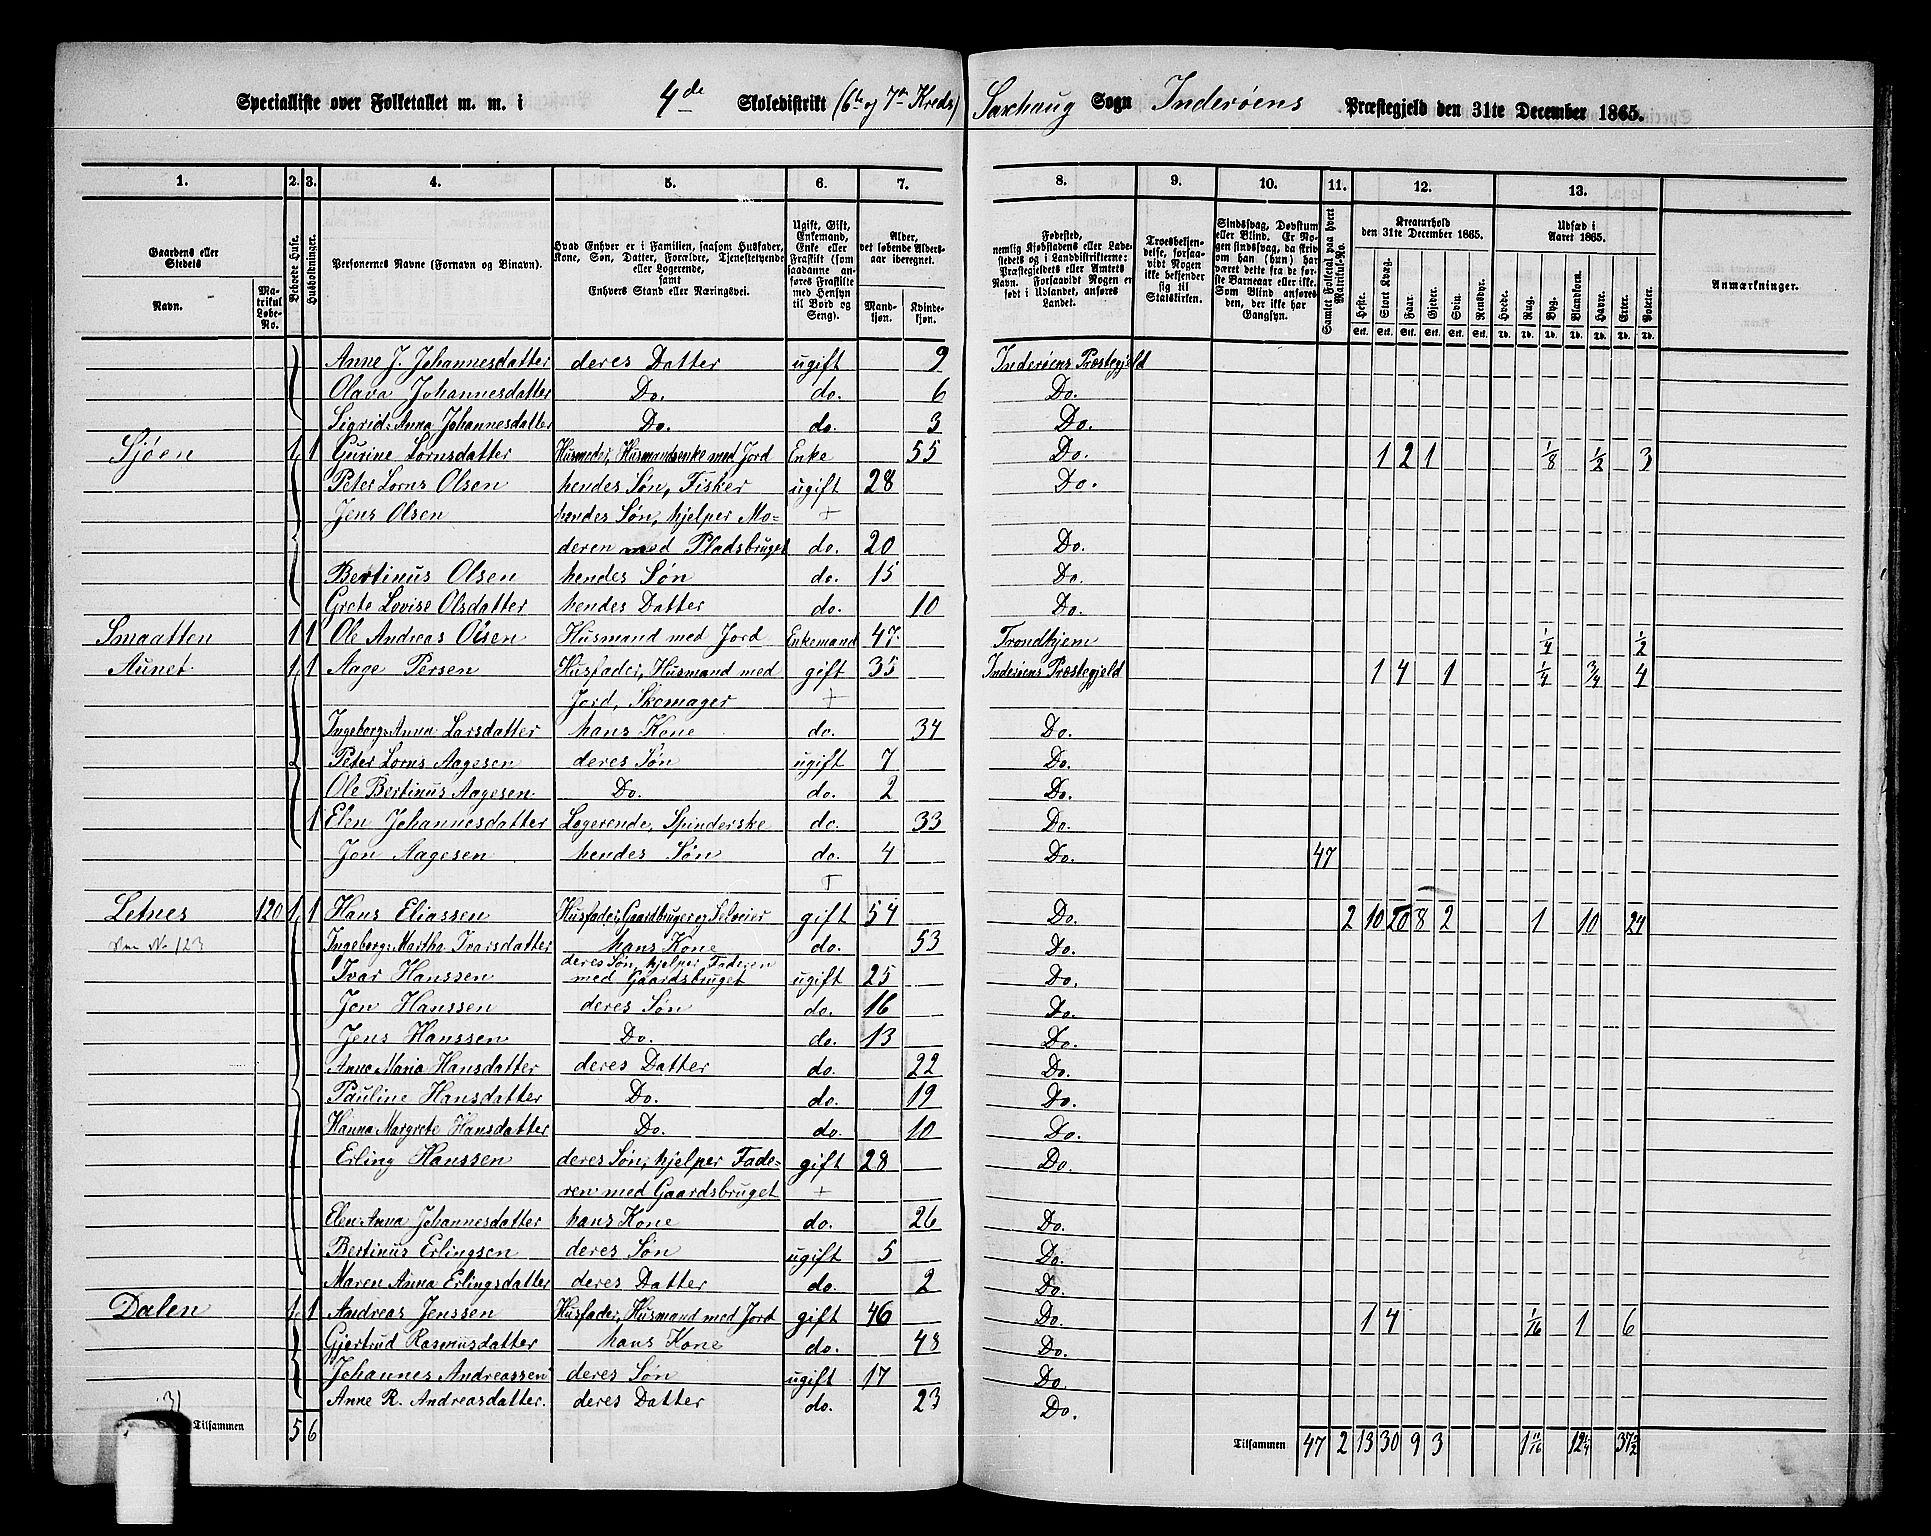 Specialliste over Folketallet m. m. i 4de Skoledistrikt (6te og 7de Kreds) Saxhaug Sogn Inderøens Præstegjeld den 31te December 1865.
1. 2. 3. 4. 5. 6. 7. 8. 9. 10. 11. 12. 13.
Gaardens eller Stedets Navn. Matrikul Løbe-No.
Beboede Huse.
Husholdninger.
Personernes Navne (Fornavn og Binavn).
Hvad Enhver er i Familien, saasom Husfader, Kone, Søn, Datter, Forældre, Tjenestetyende eller Logerende, samt Enhvers Stand eller Næringsvei.
Ugift, Gift, Enkemand, Enke eller Fraskilt (som saadanne anføres Fraskilte med Hensyn til Bord og Seng).
Alder, det løbende Aldersaar iberegnet. Mandkjøn. Kvindekjøn.
Fødested, nemlig Kjøbstadens eller Ladestedets og i Landdistrikterne: Præstegjeldets eller Amtets Navn. Forsaavidt Nogen er født i Udlandet, anføres Landet.
Troesbekjendelse, forsaavidt Nogen ikke bekjender sig til Statskirken.
Sindssvag, Døvstum eller Blind. Er Nogen sindssvag, da skrives om han (hun) har været dette fra de første Barneaar eller ikke. Som Blind anføres den, der ikke har Gangsyn.
Samlet Folketal paa hvert Matrikul-No.
Kreaturhold den 31te December 1865.
Heste. Stort Kvæg. Faar. Gjeder. Svin. Rensdyr.
Udsæd i Aaret 1865.
Hvede. Rug. Byg. Blandkorn. Havre. Erter. Poteter.
Anmærkninger.
Anne J. Johannesdatter deres Datter ugift 9 Inderøens Præstegjeld
Olava Johannesdatter Do. do. 6 Do.
Sigrid Anna Johannesdatter Do. do. 3 Do.
Sjøen 1 1 Gurine Lornsdatter Husmoder, Husmandsenke med Jord Enke 55 Do. 1 2 1 1/8 1/2 3
Peter Lorns Olsen hendes Søn, Fisker ugift 28 Do.
Jens Olsen hendes Søn, hjelper Mo= +
deren med Pladsbruget do. 20 Do.
Bertinus Olsen hendes Søn do. 15 Do.
Grete Lovise Olsdatter hendes Datter do. 10 Do.
Smaatten 1 1 Ole Andreas Olsen Husmand med Jord Enkemand 47 Trondhjem 1/4 1/2
Aunet 1 1 Aage Persen Husfader, Husmand med gift 35 Inderøens Præstegjeld 1 4 1 1/4 3/4 4
Jord, Skomager +
Ingeborg Anna Larsdatter hans Kone do. 34 Do.
Peter Lorns Aagesen deres Søn ugift 7 Do.
Ole Bertinus Aagesen Do. do. 2 Do.
1 Elen Johannesdatter Logerende, Spinderske do. 33 Do.
Jon Aagesen hendes Søn do. 4 Do. 47
+
Letnes 120 1 1 Hans Eliassen Husfader, Gaardbruger og Selveier gift 54 Do. 2 10 20 8 2 1 10 24
No 123 Ingeborg Martha Ivarsdatter hans Kone do. 53 Do.
Ivar Hanssen deres Søn, hjelper Faderen med Gaardsbruget ugift 25 Do.
Jon Hanssen deres Søn do. 16 Do.
Jens Hanssen Do. do. 13 Do.
Anne Maria Hansdatter deres Datter do. 22 Do.
Pauline Hansdatter Do. do. 19 Do.
Hanna Margrete Hansdatter Do. do. 10 Do.
Erling Hanssen deres Søn, hjelper Fade= gift 28 Do.
ren med Gaardsbruget +
Elen Anna Johannesdatter hans Kone do. 26 Do.
Bertinus Erlingsen deres Søn ugift 5 Do.
Maren Anna Erlingsdatter deres Datter do. 2 Do.
Dalen 1 1 Andreas Jenssen Husfader, Husmand med Jord gift 46 Do. 1 4 1/16 1 6
Gjertrud Rasmusdatter hans Kone do. 48 Do.
Johannes Andreassen deres Søn ugift 17 Do.
Anne R. Andreasdatter. deres Datter do. 23 Do.
Tilsammen 5 6 Tilsammen 47 2 13 30 9 3 1 11/16 12 1/4 37 1/2